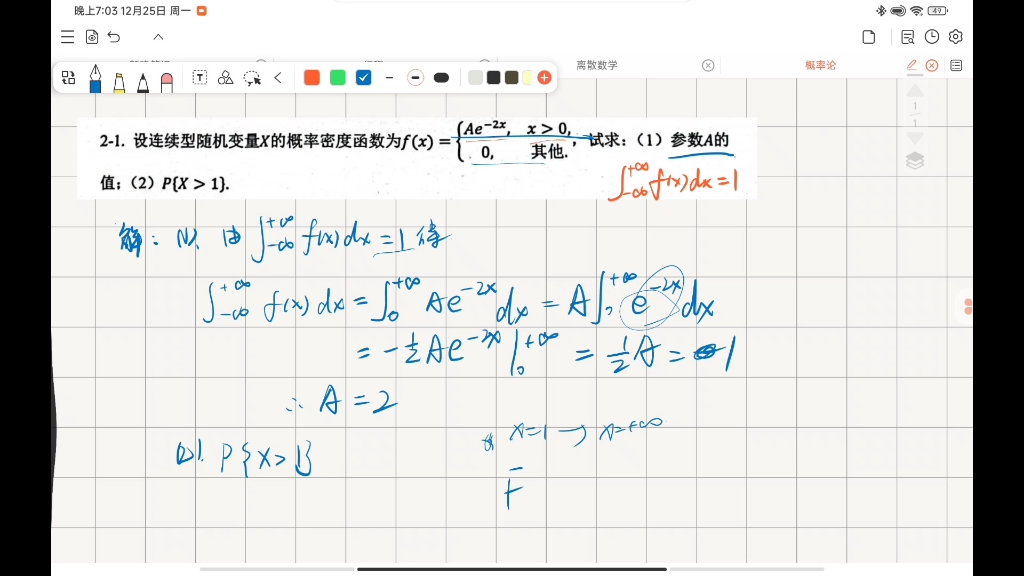 晚上7:03 12月25日 周一
49
离散数学
概率论
1
1
2-1. 设连续型随机变量X的概率密度函数为f(x) = { Ae^{-2x}, x > 0, 0, 其他. , 试求：（1）参数A的
值；（2）P{X > 1}.
∫_{-∞}^{+∞} f(x)dx = 1
解： (1). 由 ∫_{-∞}^{+∞} f(x)dx = 1 得
∫_{-∞}^{+∞} f(x)dx = ∫_0^{+∞} Ae^{-2x}dx = A∫_0^{+∞} e^{-2x}dx
= -½Ae^{-2x}|_0^{+∞} = ½A = 1
∴ A = 2
x=1 → x=+∞
(2). P{X>1}
F